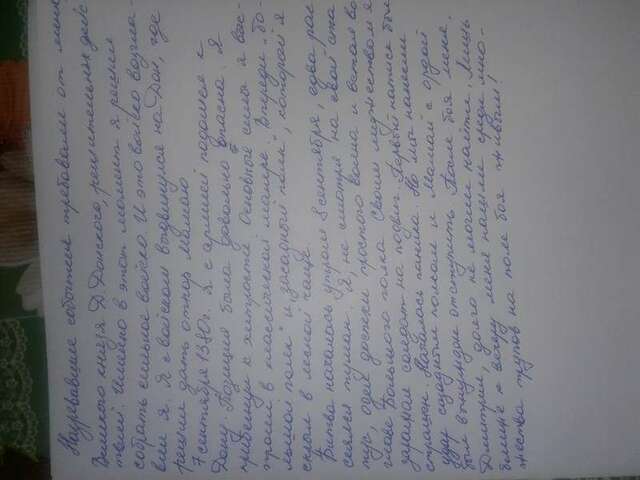 Назревавшие события требовали от меня
Великого князя Д.Донского, решительных дейс
твий. Именно в этот момент я решил
собрать сильное войско. И это войско возгла-
вил я. Я с войском выдвинулся на Дон, где
решил дать отпор Мамаю
7 сентября 1380г. я с армией подошел к
Дону. Позиция была довольно опасна. Я
прибегнул к хитрости. Основные силы я выс-
троил в классической манере. Впереди "Бо-
льшой полк" и "засадный полк", который я
скрыл в лесной чаще.
Битва началась утром 8 сентября, едва рас
сеялся туман. Я, не смотря на свой ста
тус, одел доспехи простого воина и встал во
главе Большого полка. Своим мужеством я
заряжал солдат на подвиг. Первый натиск был
страшен. Началась паника. Но мы нанесли
удар засадным полком и Мамай с ордой
был вынужден отступить. После боя меня,
Дмитрия, долго не могли найти. Лишь
ближе к вечеру меня нашли среди мно-
жества трупов на поле боя живым!